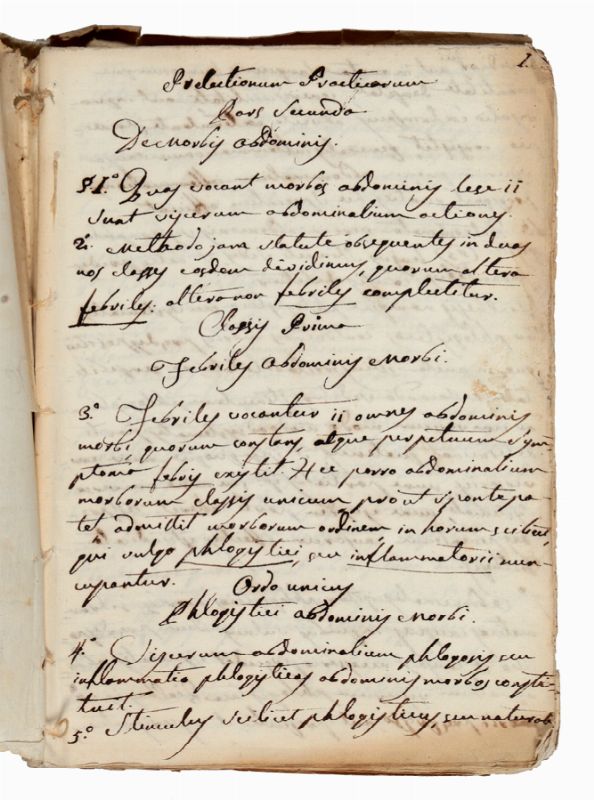 1.
Prelectionum Practicarum
Pars Secunda
De Morbis abdominis.
§ 1.° Quos vocant morbos abdominis lese ii
sunt viscerum abdominalium actiones.
2.° Methodo jam statute obsequentes in duas
nos classes eosdem dividimus, quorum altera
febriles: altera non febriles complectitur.
Classis Prima
Febriles Abdominis Morbi.
3.° Febriles vocantur ii omnes abdominis
morbi, quorum constans, atque perpetuum sym-
ptoma febris existit. Hec porro abdominalium
morborum classis unicum, prout sponte pa-
tet admittit morborum ordinem, in horum scilicet,
qui vulgo phlogistici, seu inflammatorii nun-
cupantur.
Ordo unicus
Phlogistici abdominis Morbi.
4.° Viscerum abdominalium phlogosis seu
inflammatio phlogisticos abdominis morbos consti-
tuit.
5.° Stimulus scilicet phlogisticus, seu